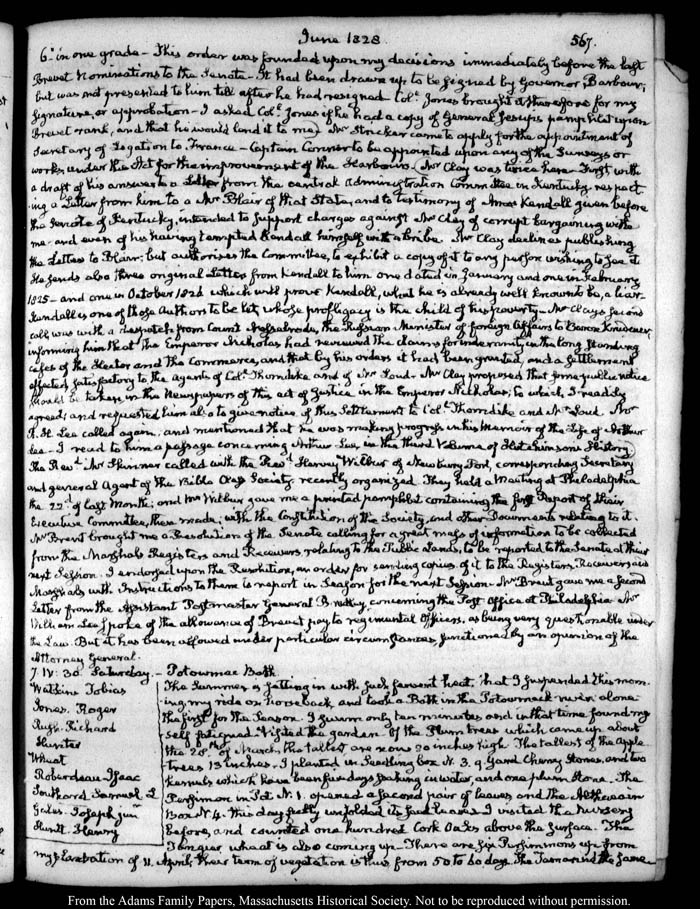 June 1828
567.
6th in one grade – This order was founded upon my decisions immediately before the last
Brevet Nominations to the Senate – It had been drawn up to be signed by Governor Barbour;
but was not presented to him till after he had resigned. Coll. Jones brought it therefore for my
signature, or approbation – I asked Coll. Jones if he had a copy of General Jesup's pamphlet upon
Brevet rank, and that he would lend it to me. Mr Stricker came to apply for the appointment of
Secretary of Legation to France – Captain Conner to be appointed upon any of the Surveys or
works under the Act for the improvement of the Harbours. Mr Clay was twice here. First with
a draft of his answer to a Letter from the central Administration Committee in Kentucky, respect-
ing a Letter from him to a Mr Blair of that State, and to testimony of Amos Kendall given before
the Senate of Kentucky, intended to support charges against Mr Clay of corrupt bargaining with
me – and even of his having tempted Kendall himself with a bribe. Mr Clay declines publishing
the Letters to Blair; but authorises the Committee, to exhibit a copy of it to any person wishing to see it
He sends also three original Letters from Kendall to him one dated in January and one in February
1825 – and one in October 1824 which will prove Kendall, what he is already well known to be, a liar.
Kendall is one of those Authors to be let, whose profligacy is the child of his poverty – Mr Clay's second
call, was with a despatch from Count Nesselrode, the Russian Minister of foreign Affairs to Baron Krudener,
informing him that the Emperor Nicholas had reviewed the claims for indemnity in the long standing
cases of the Hector and the Commerce, and that by his orders it had been granted, and a settlement
effected, satisfactory to the agents of Coll. Thorndike and of Mr Loud. Mr Clay proposed that some public notice
should be taken in the Newspapers of this act of Justice in the Emperor Nicholas; to which, I readily
agreed; and requested him also to give notice of this Settlement to Coll. Thorndike and Mr Loud. Mr
R. H. Lee called again, and mentioned that he was making progress in his Memoir of the Life of Arthur
Lee – I read to him a passage concerning Arthur Lee, in the third Volume of Hutchinson's History.
The Revd. Mr Skinner called with the Revd. Hervey Wilbur of Newbury Port, corresponding Secretary
and general Agent of the Bible Class Society recently organized. They held a Meeting at Philadelphia
the 22d. of last Month; and Mr Wilbur gave me a printed pamphlet containing the first Report of their
Executive Committee, there made; with the Constitution of the Society, and other Documents relating to it.
Mr Brent brought me a Resolution of the Senate calling for a great mass of information to be collected
from the Marshals Registers and Receivers relating to the Public Lands, to be reported to the Senate at their
next Session. I endorsed upon the Resolution, an order for sending copies of it to the Registers, Receivers and
Marshals with Instructions to them to report in Season for the next Session. Mr Brent gave me a second
Letter from the Assistant Postmaster General Bradley, concerning the Post Office at Philadelphia Mr
William Lee spoke of the allowance of Brevet pay to regimental Officers, as being very questionable under
the Law. But it has been allowed under particular circumstances, sanctioned by an opinion of the
Attorney General.
7. IV: 30. Saturday – Potowmac Bath
Watkins Tobias
Jones. Roger
Rush. Richard
Hunter
Wheat
Roberdeau Isaac
Southard Samuel L
Gales. Joseph junr
Huntt Henry
The Summer is setting in with such fervent heat, that I suspended this morn-
ing my ride on horseback, and took a Bath in the Potowmack river alone
the first for the Season. I swum only ten minutes and in that time found my
self fatigued. Visited the garden. Of the Plum trees which came up about
the 20th. of March, the tallest are now 20 inches high. The tallest of the apple
trees 13 inches. I planted in Seedling box N. 3. 9 Gand Cherry Stones, and two
kernels which have been few days soaking in water, and one plum Stone. The
Persimon in Pot N. 1. opened a second pair of leaves and the Althea in
Box N. 4. this day fully unfolded its seed leaves I visited the Nursery
before, and counted one hundred Cork Oaks above the surface. The
wheat is also coming up – There are six Persimmons up from
my plantation of 11. April, their term of vegetation is thus from 50 to 60 days. The Tamarind the same
From the Adams Family Papers, Massachusetts Historical Society. Not to be reproduced without permission.